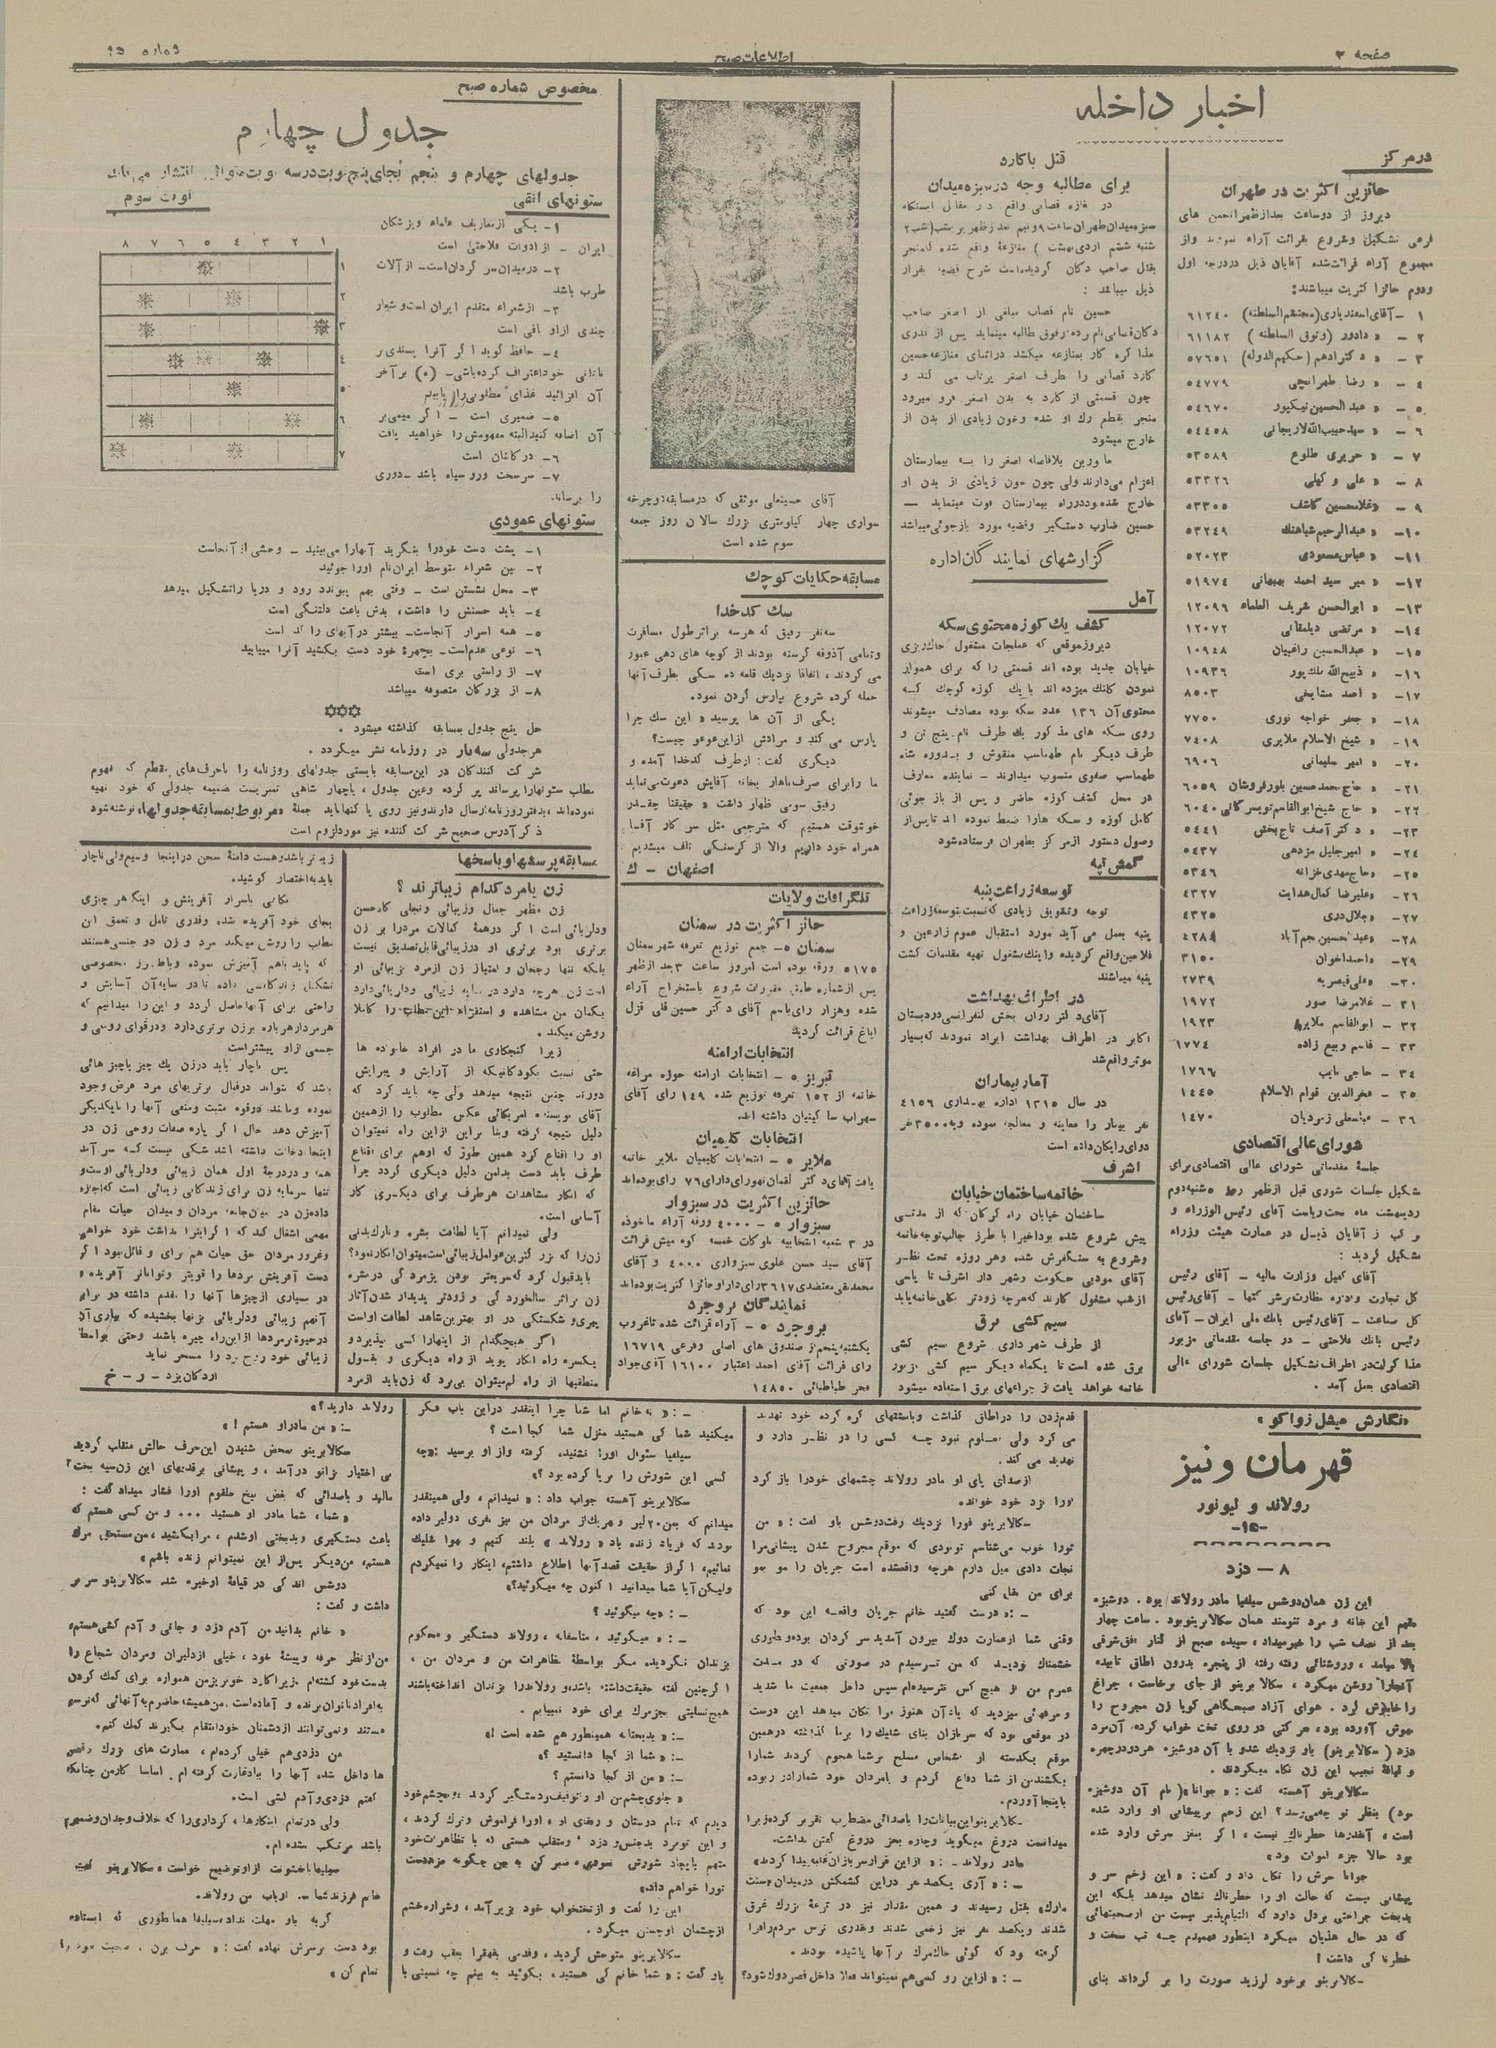 صفحه ۲
اطلاعات صبح
شماره ۹۵
اخبار داخله
در مرکز
حائزین اکثریت در طهران
دیروز از دو ساعت بعد از ظهر انجمن های
فرعی تشکیل و شروع بقرائت آراء نمودند و از
مجموع آراء قرائت شده آقایان ذیل در درجه اول
و دوم حائز اکثریت میباشند:
۱ - آقای اسفندیاری (محتشم السلطنه) ۶۱۲۴۰
۲ - « دادور (وثوق السلطنه) ۶۱۱۸۲
۳ - « دکتر ادهم (حکیم الدوله) ۵۷۶۵۱
۴ - « رضا طهرانچی ۵۴۷۷۹
۵ - « عبدالحسین نیکپور ۵۴۶۷۰
۶ - « سید حبیب الله لاریجانی ۵۴۴۵۸
۷ - « حریری طلوع ۵۳۵۸۹
۸ - « علی وکیلی ۵۳۳۲۶
۹ - « غلامحسین کاشف ۵۳۳۰۵
۱۰ - « عبدالرحیم ضیاهنگ ۵۳۲۴۹
۱۱ - « عباس مسعودی ۵۲۰۲۳
۱۲ - « میر سید احمد بهبهانی ۵۱۹۷۴
۱۳ - « ابوالحسن شریف العلماء ۱۲۰۹۶
۱۴ - « مرتضی دیلمقانی ۱۲۰۷۲
۱۵ - « عبدالحسین راغبیان ۱۰۹۴۸
۱۶ - « ذبیح الله ملك پور ۱۰۹۳۶
۱۷ - « احمد مشایخی ۸۵۰۳
۱۸ - « جعفر خواجه نوری ۷۷۵۰
۱۹ - « شیخ الاسلام ملایری ۷۴۰۸
۲۰ - « امیر سلیمانی ۶۹۰۶
۲۱ - « حاج محمدحسین بلورفروشان ۶۰۵۹
۲۲ - « حاج شیخ ابوالقاسم تویسرکانی ۶۰۴۰
۲۳ - « دکتر آصف تاج بخش ۵۴۴۱
۲۴ - « امیر جلیل مژدهی ۵۴۳۷
۲۵ - « حاج مهدی خزانه ۵۳۴۶
۲۶ - « علیرضا کمال هدایت ۴۳۲۷
۲۷ - « جلال دری ۴۳۲۵
۲۸ - « عبدالحسین جم آباد ۴۲۸۹
۲۹ - « احمد اخوان ۳۱۵۰
۳۰ - « علی قیصریه ۲۷۳۹
۳۱ - غلامرضا صور ۱۹۷۲
۳۲ - ابوالقاسم ملایری ۱۹۲۳
۳۳ - قاسم ربیع زاده ۱۷۷۴
۳۴ - حاجی نایب ۱۷۶۶
۳۵ - فخرالدین قوام الاسلام ۱۴۴۵
۳۶ - عباسعلی زمردیان ۱۴۷۰
شورای عالی اقتصادی
جلسهٔ مقدماتی شورای عالی اقتصادی برای
تشکیل جلسات شوری قبل از ظهر روز ۵شنبه دوم
اردیبهشت ماه تحت ریاست آقای رئیس الوزراء و
مرکب از آقایان ذیل در عمارت هیئت وزراء
تشکیل گردید:
آقای کفیل وزارت مالیه - آقای رئیس
کل تجارت و اداره نظارت بر شرکتها - آقای رئیس
کل صناعت - آقای رئیس بانك ملی ایران - آقای
رئیس بانك فلاحتی - در جلسه مقدماتی مزبور
مذاکرات در اطراف تشکیل جلسات شورای عالی
اقتصادی بعمل آمد.
قتل با کارد
برای مطالبه وجه در سبزه میدان
در مغازه قصابی واقع در مقابل ایستگاه
سبزه میدان طهران ساعت ۹ و نیم بعد از ظهر پریشب (شب ۲
شنبه ششم اردیبهشت) منازعهٔ واقع شده که منجر
بقتل صاحب دکان گردیده است شرح قضیه بقرار
ذیل میباشد:
حسین نام قصاب مبلغی از اصغر صاحب
دکان قصابی نامبرده رفوق طالبه مینماید پس از قدری
مذاکره کار بمنازعه میکشد در اثنای منازعه حسین
کارد قصابی را بطرف اصغر پرتاب می کند و
چون قسمتی از کارد به بدن اصغر فرو میرود
منجر بقطع رك او شده و خون زیادی از بدن او
خارج میشود
مامورین بلافاصله اصغر را به بیمارستان
اعزام میدارند ولی چون خون زیادی از بدن او
خارج شده بود در راه بیمارستان فوت مینماید -
حسین ضارب دستگیر و قضیه مورد بازجوئی میباشد
گزارشهای نمایندگان اداره
آمل
کشف یك کوزه محتوی سکه
دیروز موقعی که عملجات مشغول خاکریزی
خیابان جدید بوده اند قسمتی را که برای هموار
نمودن کلنك میزده اند با یك کوزه کوچك که
محتوی آن ۱۳۶ عدد سکه بوده مصادف میشوند
روی سکه های مذکور یك طرف نام پنج تن و
طرف دیگر نام طهماسب منقوش و بدوره شاه
طهماسب صفوی منسوب میدارند - نماینده معارف
در محل کشف کوزه حاضر و پس از بازجوئی
کامل کوزه و سکه ها را ضبط نموده اند تا پس از
وصول دستور از مرکز بطهران فرستاده شود
گمش آپه
توسعه زراعت پنبه
توجه و تشویق زیادی که نسبت بتوسعه زراعت
پنبه بعمل می آید مورد استقبال عموم زارعین و
فلاحین واقع گردیده و اینك مشغول تهیه مقدمات کشت
پنبه میباشند
در اطراف بهداشت
آقای دکتر روان بخش کنفرانسی در دبستان
اکابر در اطراف بهداشت ایراد نمودند که بسیار
موثر واقع شد
آمار بیماران
در سال ۱۳۱۵ اداره بهداری ۴۱۵۶
نفر بیمار را معاینه و معالجه نموده و به ۳۵۰۰ نفر
دوای رایگان داده است
اشرف
خاتمه ساختمان خیابان
ساختمان خیابان راه گرگان که از مدتی
پیش شروع شده بود اخیراً با طرز جالب توجه خاتمه
و شروع به سنگفرش شده و هر روزه تحت نظر
آقای مودبی حکومت و شهردار اشرف تا پاسی
از شب مشغول کارند که هرچه زودتر بکلی خاتمه یابد
سیم کشی برق
از طرف شهرداری شروع سیم کشی
برق شده است تا یکماه دیگر سیم کشی مزبور
خاتمه خواهد یافت از چراغهای برق استفاده میشود
آقای حسینعلی موثقی که در مسابقه دوچرخه
سواری چهار کیلومتری بزرك سالان روز جمعه
سوم شده است
مسابقه حکایات کوچك
سك کدخدا
سه نفر رفیق که هر سه بر اثر طول مسافرت
و تمامی آذوقه گرسنه بودند از کوچه های دهی عبور
می کردند، اتفاقا نزدیك قلعه ده سگی بطرف آنها
حمله کرده شروع بپارس کردن نمود.
یکی از آن ها پرسید « این سك چرا
پارس می کند و مرادش از این عوعو چیست؟
دیگری گفت: از طرف کدخدا آمده و
ما را برای صرف ناهار بخانه آقایش دعوت می نماید
رفیق سومی اظهار داشت « حقیقتا چقدر
خوشوقت هستیم که مترجمی مثل سرکار آقا
همراه خود داریم والا از گرسنگی تلف میشدیم
اصفهان - ك
تلگرافات ولایات
حائز اکثریت در سمنان
سمنان ۵ - جمع توزیع تعرفه شهر سمنان
۵۱۷۵ ورقه بوده است امروز ساعت ۳ بعد از ظهر
پس از شماره طبق مقررات شروع باستخراج آراء
شده و هزار رای باسم آقای دکتر حسین قلی قزل
ایاغ قرائت گردید
انتخابات ارامنه
تبریز ۵ - انتخابات ارامنه حوزه مراغه
خاتمه از ۱۵۲ تعرفه توزیع شده ۱۴۹ رای آقای
سهراب ساگینیان داشته اند.
انتخابات کلیمیان
ملایر ۵ - انتخابات کلیمیان ملایر خاتمه
یافت آقای دکتر لقمان نهورای دارای ۷۶ رای بوده اند
حائزین اکثریت در سبزوار
سبزوار ۵ - ۴۰۰۰ ورقه آراء ماخوذه
در ۳ شعبه انتخابیه بلوکات خمسه کوه میش قرائت
آقای سید حسن علوی سبزواری ۴۰۰۰ و آقای
محمدتقی معتضدی ۳۶۱۷ رای دارا و حائز اکثریت بوده اند
نمایندگان بروجرد
بروجرد ۵ - آراء قرائت شده تا غروب
یکشنبه پنجم از صندوق های اصلی و فرعی ۱۶۷۱۹
رای قرائت آقای احمد اعتبار ۱۶۱۰۰ آقای جواد
فخر طباطبائی ۱۴۸۵۰
مخصوص شماره صبح
جدول چهارم
جدولهای چهارم و پنجم بجای پنج نوبت در سه نوبت متوالی انتشار می یابد
نوبت سوم
ستونهای افقی
۱- یکی از معاریف علماء و پزشکان
ایران - از ادوات فلاحتی است
۲- در میدان سرگردان است - از آلات
طرب باشد
۳- از شعراء متقدم ایران است و شعار
چندی از او باقی است
۴- حافظ گوید اگر آنرا پسندی بر
نادانی خود اعتراف کرده باشی - (ه) بر آخر
آن افزائید غذای مطلوبی را یابید
۵- ضمیری است - اگر میمی بر
آن اضافه کنید البته مفهومش را خواهید یافت
۶- در کاشان است
۷- سرسخت و رو سیاه باشد - دوری
را برساند.
۱ ۲ ۳ ۴ ۵ ۶ ۷ ۸
۱
۲
۳
۴
۵
۶
۷
ستونهای عمودی
۱- پشت دست خود را بنگرید آنها را می بینید - وحشی از آنجاست
۲- بین شعراء متوسط ایران نام او را جوئید
۳- محل نشستن است - وقتی بهم پیوندد رود و دریا را تشکیل میدهد
۴- باید حسنش را داشت، بدش باعث دلتنگی است
۵- همه اسرار آنجاست - بیشتر در آبهای راکد است
۶- نوعی عدم است - بچهره خود دست بکشید آنرا مییابید
۷- از راستی بری است
۸- از بزرگان متصوفه میباشد
حل پنج جدول بمسابقه گذاشته میشود.
هر جدولی سه بار در روزنامه نشر میگردد.
شرکت کنندگان در این مسابقه بایستی جدولهای روزنامه را باحرف های مقطع که مفهوم
مطلب ستونها را برساند پر کرده و عین جدول، یا چهار شاهی تمبر پست ضمیمه جدولی که خود تهیه
نموده اند، بدفتر روزنامه ارسال دارند و نیز روی پاکتها باید جملهٔ «مربوط بمسابقه جدولها» نوشته شود
ذکر آدرس صحیح شرکت کننده نیز مورد لزوم است
مسابقه پرسشها و پاسخها
زن یا مرد کدام زیباترند؟
زن مظهر جمال و زیبائی و تجلی گاه حسن
و دلربائی است اگر در همهٔ کمالات مرد را بر زن
برتری بود برتری او در زیبائی قابل تصدیق نیست
بلکه تنها رجحان و امتیاز زن از مرد زیبائی او
است زن هرچه دارد در سایه زیبائی و دلربائی دارد
بگمان من مشاهده و استقراء این مطلب را کاملا
روشن میکند.
زیرا کنجکاوی ما در افراد خانوده ها
حتی نسبت بکودکانیکه از آرایش و پیرایش
دورند چنین نتیجه میدهد ولی چه باید کرد که
آقای نویسنده امریکائی عکس مطلوب را از همین
دلیل نتیجه گرفته و بنا براین از این راه نمیتوان
او را اقناع کرد همین طور که او هم برای اقناع
طرف باید دست بدامن دلیل دیگری گردد چرا
که انکار مشاهدات هر طرف برای دیگری کار
آسانی است.
ولی نمیدانم آیا لطافت بشره و نازك بدنی
زن را که بزرگترین عوامل زیبائی است میتوان انکار نمود؟
باید قبول کرد که سریعتر بودن پژمردگی در بشره
زن بر اثر سالخوردگی و زودتر پدیدار شدن آثار
پیری و شکستگی در او بهترین شاهد لطافت او است
اگر هیچکدام از اینها را کسی نپذیرد و
یکسره راه انکار پوید از راه دیگری و بقول
منطقیها از راه لم میتوان پی برد که زن باید از مرد
زیباتر باشد و هست دامنهٔ سخن در اینجا وسیع ولی ناچار
باید به اختصار کوشید.
نگاهی باسرار آفرینش و اینکه هر چیزی
بجای خود آفریده شده و قدری تامل و تعمق این
مطلب را روشن میکند مرد و زن دو جنسی هستند
که باید باهم آمیزش نموده و با طرز مخصوصی
تشکیل زندگانی داده تا در سایه آن آسایش و
راحتی برای آنها حاصل گردد و این را میدانیم که
هر مرد از هر باره بر زن برتری دارد و در قوای روحی و
جسمی از او بیشتر است
پس ناچار باید در زن یك چیز یا چیزهائی
باشد که بتواند در قبال برتریهای مرد عرض وجود
نموده و مانند دو قوه مثبت و منفی آنها را با یکدیگر
آمیزش دهد حال اگر پاره صفات روحی زن در
اینجا دخالت داشته باشد شکی نیست که سرآمد
همه و در درجهٔ اول همان زیبائی و دلربائی اوست و
تنها سرمایه زن برای زندگانی زیبائی است که اجازه
داده زن در میان جامعه مردان و میدان حیات مقام
مهمی اشغال کند که اگر اینرا نداشت خود خواهی
و غرور مردان حق حیات هم برای او قائل نبود اگر
دست آفرینش مرد را قویتر و تواناتر آفریده و
در بسیاری از چیزها آنها را مقدم داشته در برابر
آنهم زیبائی و دلربائی بزنها بخشیده که بیاری آن
در حیوة بر مردها از این راه چیره باشد و حتی بواسطهٔ
زیبائی خود روح مرد را مسخر نماید
اردکان یزد - ر - خ
«نگارش میشل زواکو»
قهرمان ونیز
رولاند و لیونور
-۱۵-
۸ - دزد
این زن همان دوشس سیلفیا مادر رولاند بود. دوشیزه
مقیم این خانه و مرد تنومند همان سکالابرینو بود. ساعت چهار
بعد از نصف شب را خبر میداد، سپیده صبح از کنار افق شرقی
بالا میامد، و روشنائی رفته رفته از پنجره بدرون اطاق تابیده
آنجا را روشن میکرد، سکالابرینو از جای برخاست، چراغ
را خاموش کرد. هوای آزاد صبحگاهی گویا زن مجروح را
بهوش آورده بود، حرکتی در روی تخت خواب کرده، آن مرد
دزد (سکالابرینو) باو نزدیك شد و با آن دوشیزه هر دو در چهره
و قیافهٔ نجیب این زن نگاه میکردند.
سکالابرینو آهسته گفت: « جوانا» (نام آن دوشیزه
بود) بنظر تو چه میرسد؟ این زخم بر پیشانی او وارد شده
است، آنقدرها خطرناك نیست، اگر بمغز سرش وارد شده
بود حالا جزء اموات بود»
جوانا سرش را تکان داد و گفت: « این زخم سر و
پیشانی نیست که حالت او را خطرناك نشان میدهد بلکه این
بدبخت جراحتی بر دل دارد که التیام پذیر نیست من از صحبتهائی
که در حال هذیان میکرد اینطور فهمیدم چه تب سخت و
خطرناکی داشت!
سکالابرینو برخود لرزید صورت را بر گرداند بنای
قدم زدن را در اطاق گذاشت و باشتهای گره کرده خود تهدید
می کرد ولی معلوم نبود چه کسی را در نظر دارد و
تهدید می کند.
از صدای پای او مادر رولاند چشمهای خود را باز کرد
او را نزد خود خواند.
سکالابرینو فورا نزدیك رفت دوشس باو گفت: « من
ترا خوب می شناسم تو بودی که موقع مجروح شدن پیشانی مرا
نجات دادی میل دارم هرچه واقع شده است جریان را مو بمو
برای من نقل کنی
-: « درست گفتید خانم جریان واقعه این بود که
وقتی شما از عمارت دوك بیرون آمدید سرگردان بوده و طوری
خشمناك بودید که من ترسیدم در صورتی که در مدت
عمرم من از هیچ کس نترسیده ام سپس داخل جمعیت ما شدید
و حرفهائی میزدید که یاد آن هنوز مرا تکان میدهد این درست
در موقعی بود که سربازان بنای شلیك را بر ما گذاشته در همین
موقع یکدسته از اشخاص مسلح بر شما هجوم کردند شما را
بکشند، من از شما دفاع کردم و بامردان خود شما را در ربوده
باینجا آوردم.
سکالابرینو این بیانات را باصدائی مضطرب تقریر کرده زیرا
میدانست دروغ میگوید و چاره بجز دروغ گفتن نداشت.
مادر رولاند -: « از این قرار سربازان غلبه پیدا کردند»
-: « آری یکصد نفر در این کشمکش در میدان «سنت
مارك» بقتل رسیدند و همین مقدار نیز در ترعهٔ بزرك غرق
شدند و یکصد نفر نیز زخمی شدند و بقدری ترس مردم را فرا
گرفته بود که گوئی خاك مرك بر آنها پاشیده بودند.
-: « از این رو کسی هم نمیتواند فعلا داخل قصر دوك شود؟
-: « نه خانم اما شما چرا اینقدر در این باب فکر
میکنید شما کی هستید منزل شما کجا است؟
سیلفیا سئوال او را نشنیده گرفته و از او پرسید: «چه
کسی این شورش را برپا کرده بود؟»
سکالابرینو آهسته جواب داد: « نمیدانم، ولی همینقدر
میدانم که بمن ۲۰ لیر و بهر یك از مردان من نیز نفری دو لیر داده
بودند که فریاد زنده باد « رولاند » بلند کنیم و بهوا شلیك
نمائیم، اگر از حقیقت قصد آنها اطلاع داشتم، اینکار را نمیکردم
ولیکن آیا شما میدانید اکنون چه میگوئید؟»
-: « چه میگوئید؟
-: « میگوئید، متاسفانه، رولاند دستگیر و محکوم
بزندان گردیده، مگر بواسطهٔ تظاهرات من و مردان من،
اگر چنین گفته حقیقت داشته باشد، و رولاند را بزندان انداخته باشند
هیچ تسلیتی جز مرك برای خود نمییابم.
-: « بدبختانه همینطور هم شده است!»
-: « شما از کجا دانستید؟»
-: « من از کجا دانستم؟
« جلوی چشم من او را توقیف و دستگیر کردند، و بچشم خود
دیدم که تمام دوستان و رفقای او، او را فراموش و ترك کردند،
و این تو مرد بدجنس و دزد و متقلب هستی که با تظاهرات خود
متهم بایجاد شورش نمودی، صبر کن به بین چگونه مزد دست
ترا خواهم داد.»
این را گفت و از تختخواب خود بزیر آمد، و شراره خشم
از چشمان او جستن میکرد.
سکالابرینو متوحش گردید، و قدمی بقهقرا بعقب رفت و
باو گفت: « شما خانم کی هستید، بگوئید به بینم چه نسبتی با
رولاند دارید؟»
-: « من مادر او هستم!»
سکالابرینو بمحض شنیدن این حرف حالش منقلب گردید
بی اختیار بزانو درآمد، و پیشانی بر قدمهای این زن سیه بخت
مالید و باصدائی که بغض بیخ حلقوم او را فشار میداد گفت:
« شما، شما مادر او هستید ... و من کسی هستم که
باعث دستگیری و بدبختی او شدم، مرا بکشید، من مستحق مرك
هستم، من دیگر پس از این نمیتوانم زنده باشم»
دوشس اندکی در قیافهٔ او خیره شد سکالابرینو سر بر
داشت و گفت:
« خانم بدانید من آدم دزد و جانی و آدم کشی هستم،
من از نظر حرفه و پیشهٔ خود، خیلی از دلیران و مردان شجاع را
بدست خود کشته ام زیرا کارد خونریز من همواره برای کمك کردن
به افراد ناتوان برنده و آماده است. من همیشه حاضرم به آنهائی که ترسو
هستند و نمی توانند از دشمنان خود انتقام بگیرند کمك کنم.
من دزدی هم خیلی کرده ام، عمارت های بزرك رفتم
ها داخل شده آنها را بباد غارت گرفته ام. اساسا کار من چنانکه
گفتم دزدی و آدم کشی است.
ولی در تمام اینکارها، کرداری را که خلاف وجدان و ضمیر
باشد مرتکب نشده ام.
سیلفیا باخشونت از او توضیح خواست، سکالابرینو گفت
خانم فرزند شما ... ارباب من رولاند.
گریه باو مهلت نداد سیلفیا همانطوری که ایستاده
بود دست بر سرش نهاده گفت: « حرف بزن. صحبت خود را
تمام کن»